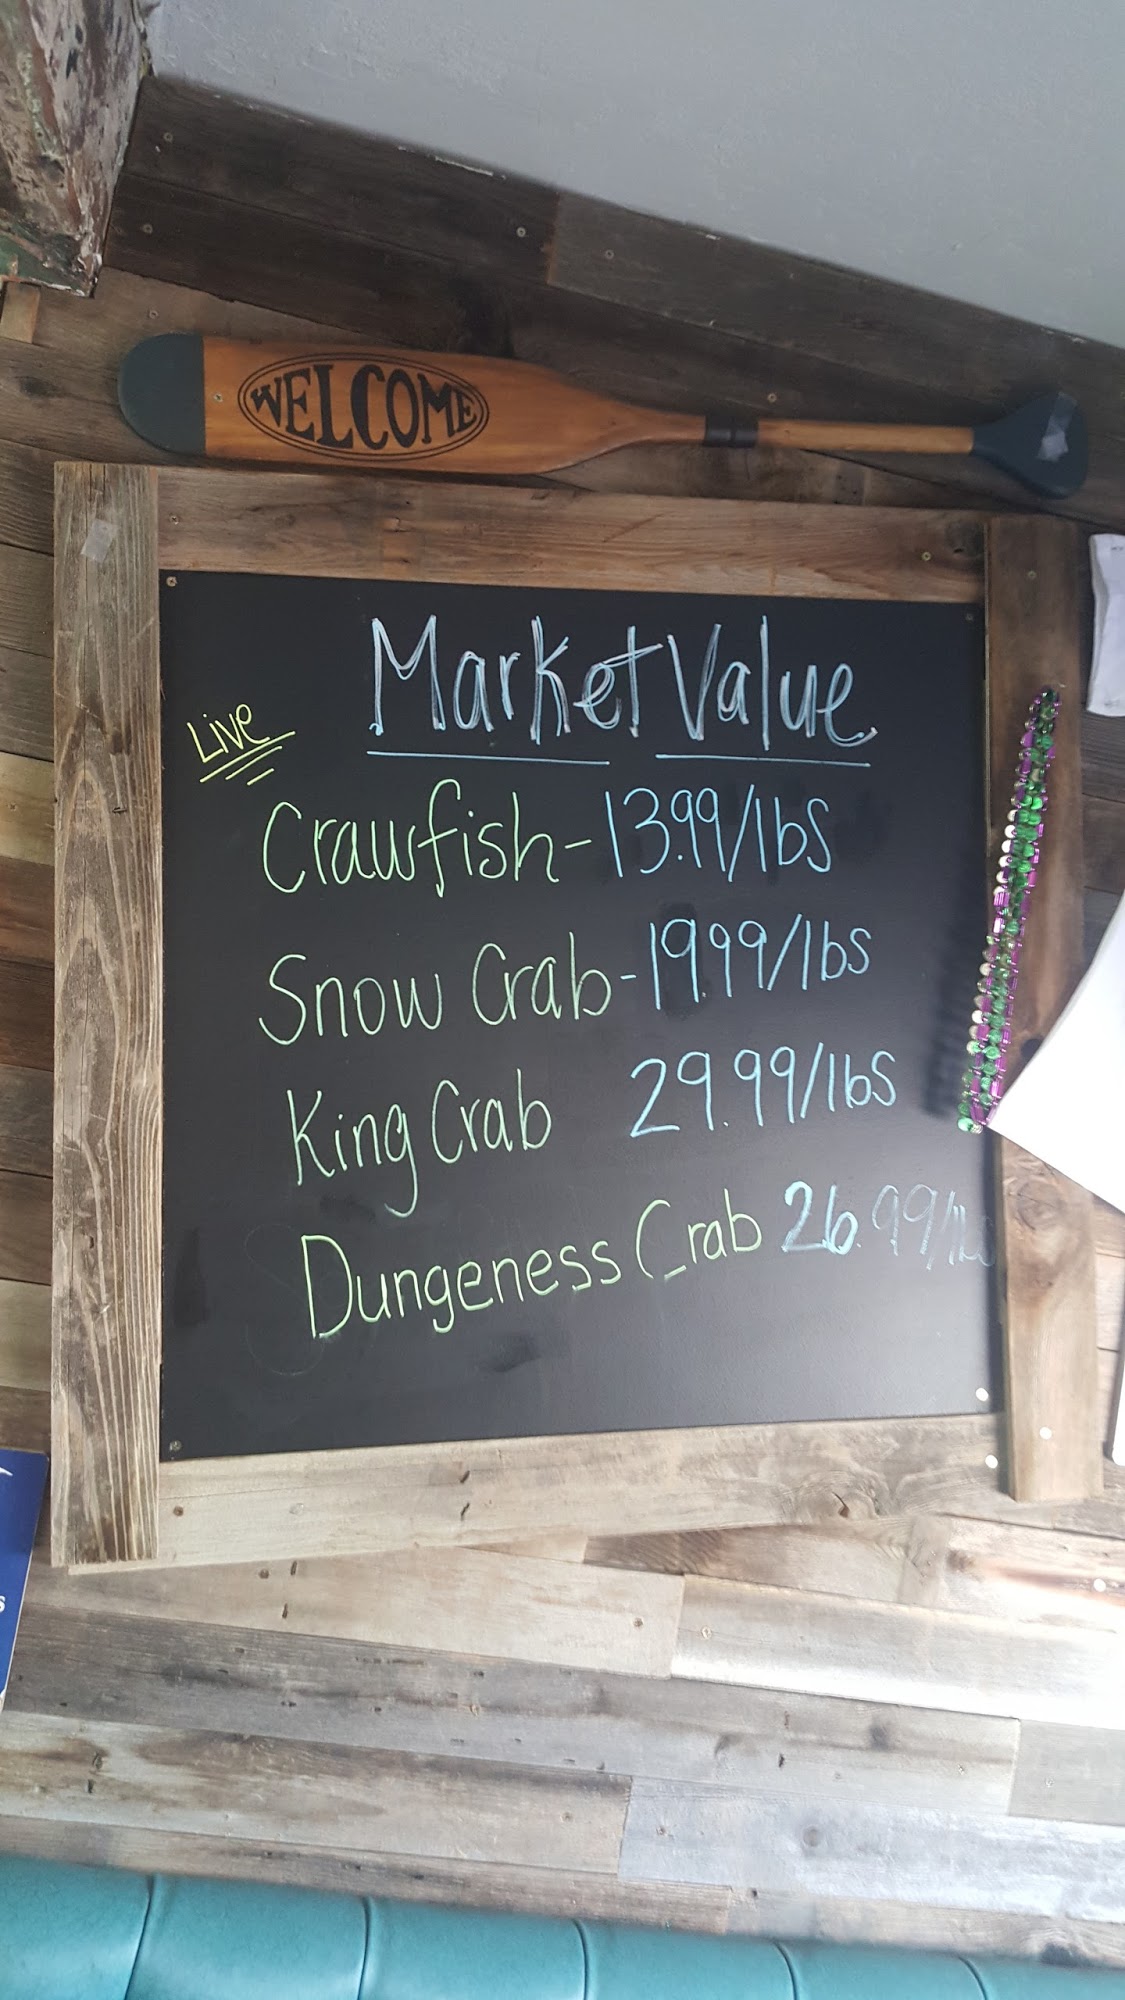 WELCOME
Market Value
Live
Crawfish - 13.99/lbs
Snow Crab - 19.99/lbs
King Crab 29.99/lbs
Dungeness Crab 26.99/lbs
s